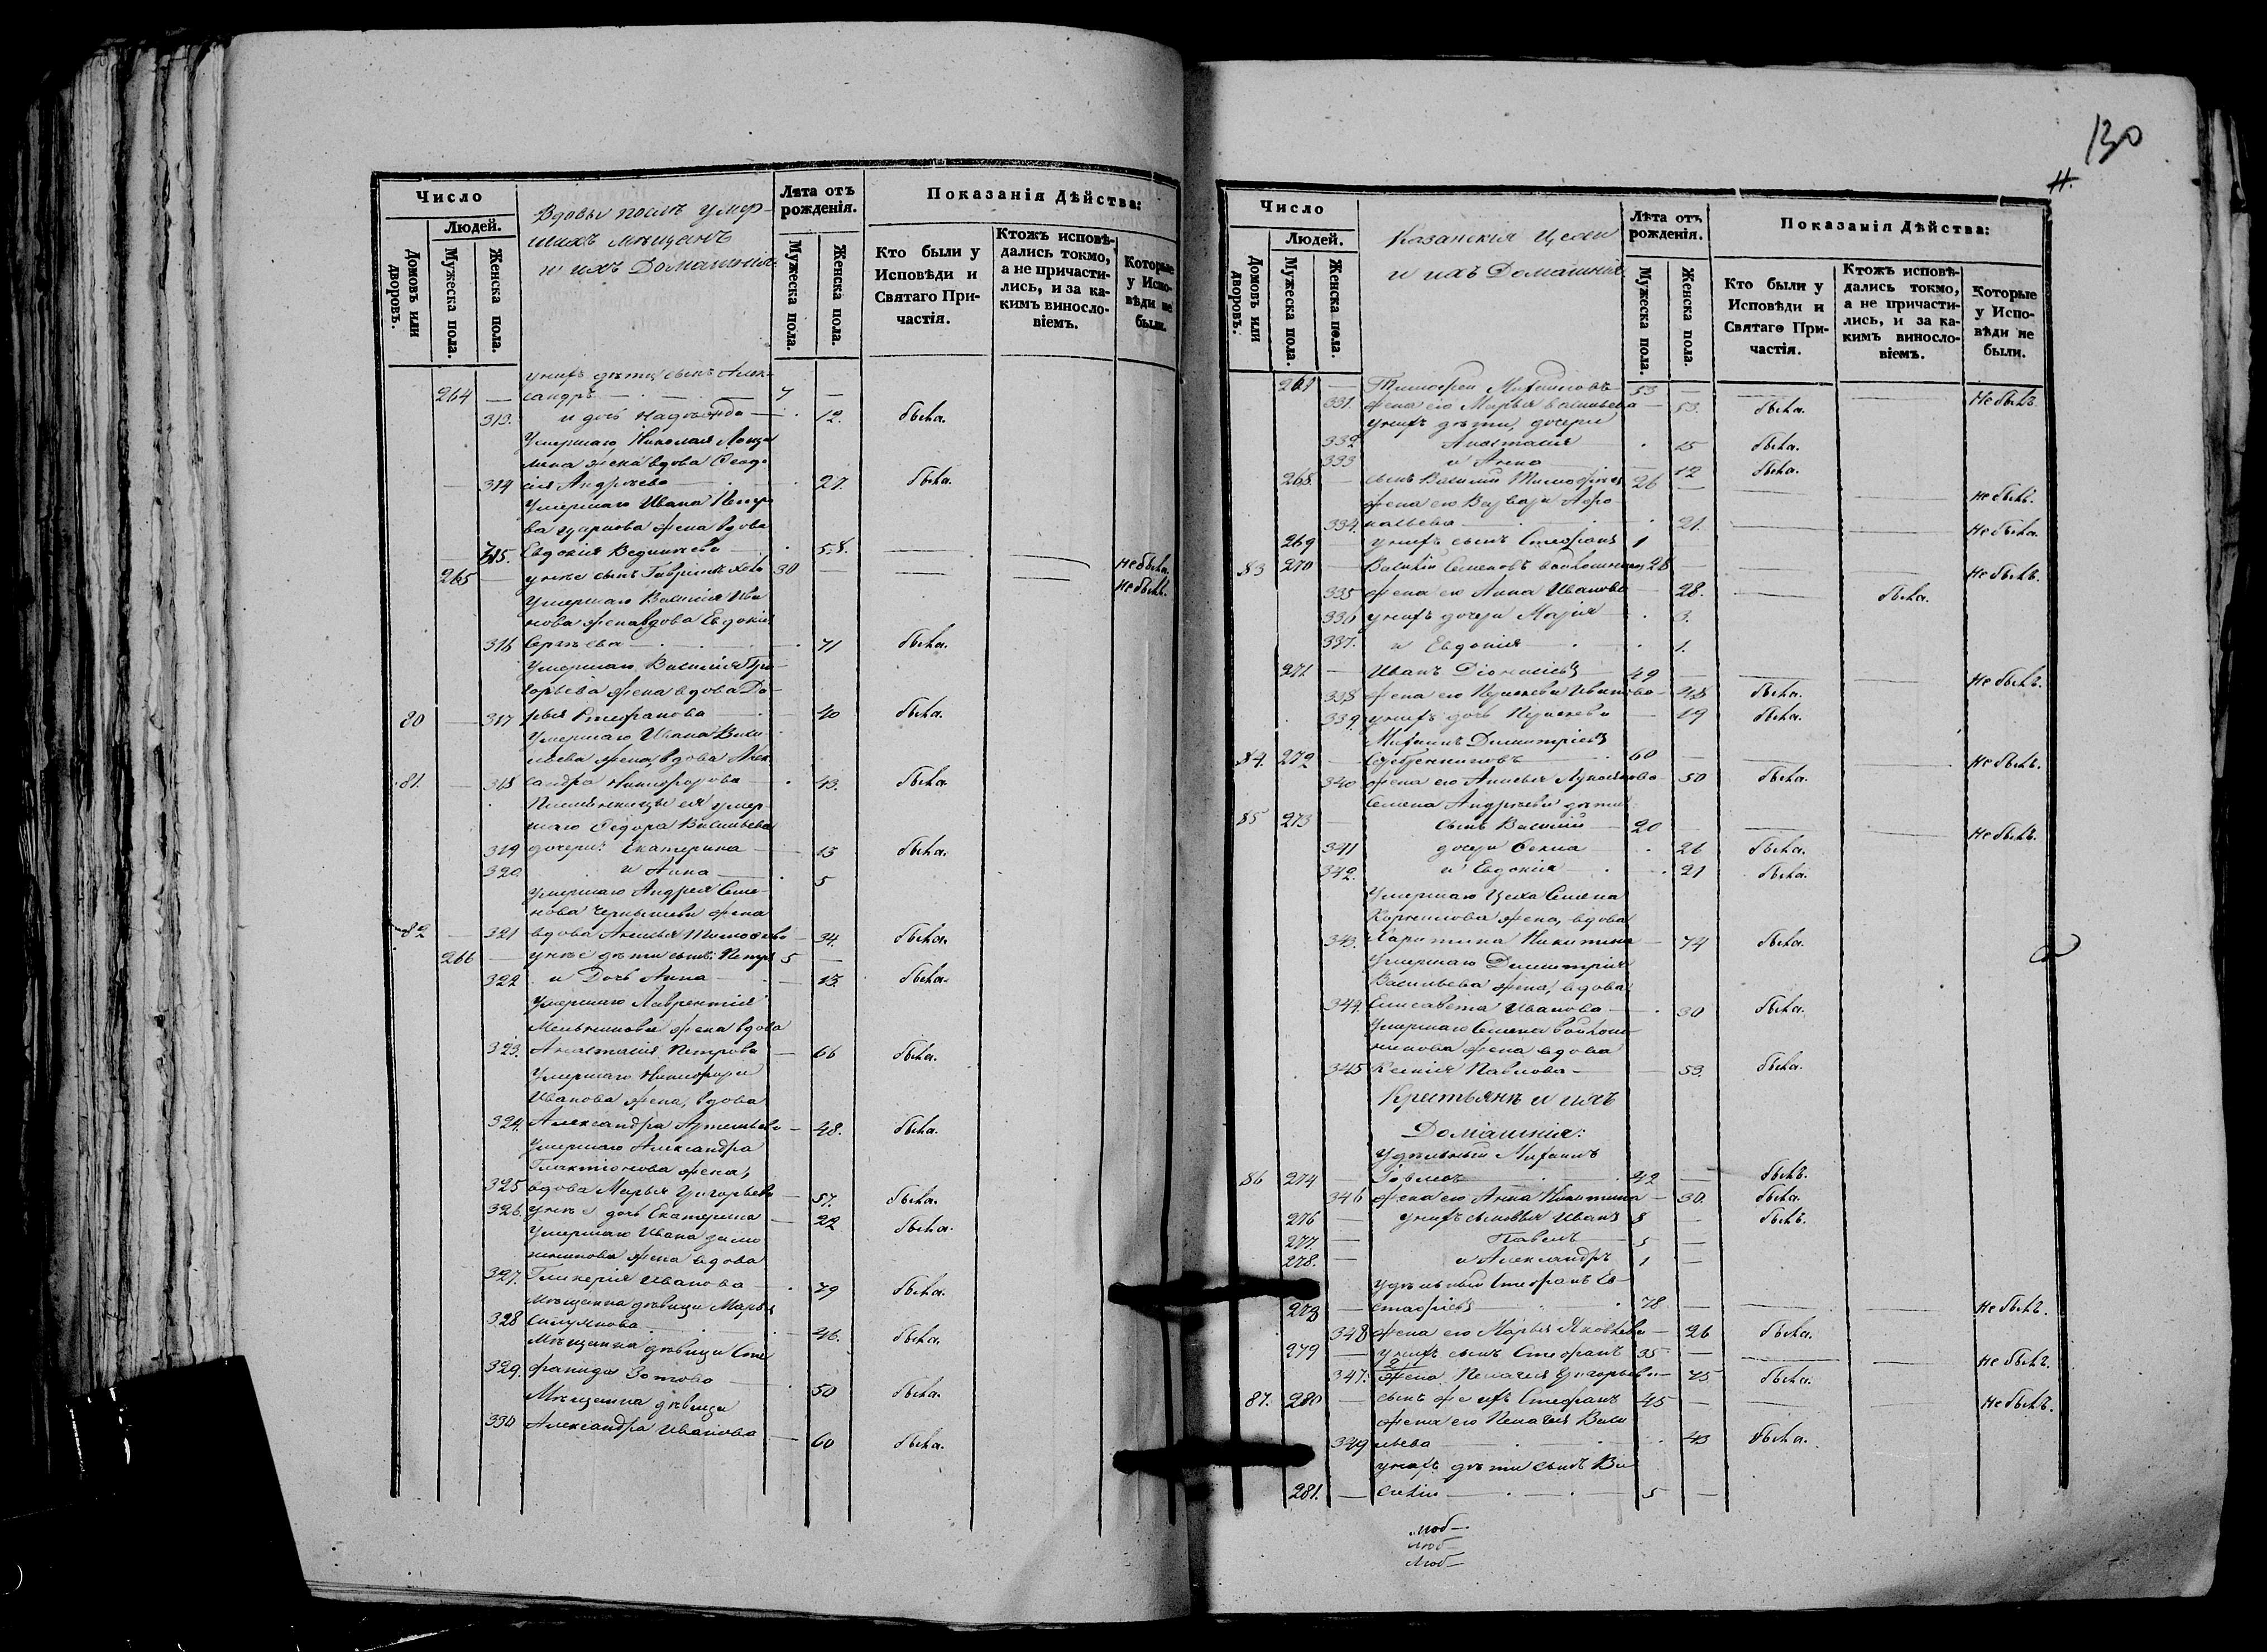 Число
Людей.
Домовъ или дворовъ.
Мужеска пола.
Женска пола.
Вдовы послѣ умер-
шихъ мѣщанъ
и ихъ Домашнія
Лѣта отъ рожденія.
Мужеска пола.
Женска пола.
Показанія Дѣйства:
Кто были у Исповѣди и Святаго При-частія.
Ктожъ исповѣ-дались токмо, а не причасти-лись, и за ка-кимъ виносло-віемъ.
Которые у Испо-вѣди не были.
у нихъ дѣти, сынъ Алек-
264 — сандръ — 7 —
313. и дочь Надежда — 12. была.
Умершаго Николая
жена вдова Ѳеодо-
314 сія Андреева 27. была.
Умершаго Ивана Петро-
ва жена вдова
315. Евдокія 58. — — Не была.
265 у нее сынъ Гаврiилъ 30 — — Не былъ.
Умершаго Василія Ива-
нова жена вдова Евдокія
316 Сергѣева — 71 была.
Умершаго Василія Гри-
горьева жена вдова Да-
80 — 317 рья Стефанова — 40 была.
Умершаго Ивана Васи-
льева жена, вдова Алек-
81. — 318 сандра Никифорова — 43. была.
Племянницы ея умер-
шаго Ѳедора Васильева
319 дочери: Екатерина — 15 была.
320. и Анна — 5
Умершаго Андрея Семе-
нова Чернышева жена
82 — 321 вдова Акилина Тимоѳеева — 34. была.
266 — у нее дѣти сынъ Петръ 5 —
322 и Дочь Анна — 13. была.
Умершаго Лаврентія
Мельникова жена вдова
323. Анастасія Петрова — 66 была.
Умершаго Никифора
Иванова жена, вдова
324. Александра Артемьева — 48. была.
Умершаго Александра
Галактіонова жена,
325 вдова Марья Григорьева — 57. была.
326. у нее дочь Екатерина — 22 была.
Умершаго Ивана
жена вдова
327. Гликерія Иванова — 79 была.
Мѣщанка дѣвица Марья
328 Силуянова — 46. была.
Мѣщанка дѣвица Сте-
329. фанида Зотова — 50 была.
Мѣщанка дѣвица
330 Александра Иванова — 60 была.
130
Число
Людей.
Домовъ или дворовъ.
Мужеска пола.
Женска пола.
Казанскія Цехи
и ихъ Домашнія
Лѣта отъ рожденія.
Мужеска пола.
Женска пола.
Показанія Дѣйства:
Кто были у Исповѣди и Святаго При-частія.
Ктожъ исповѣ-дались токмо, а не причасти-лись, и за ка-кимъ виносло-віемъ.
Которые у Испо-вѣди не были.
261 — Тимофей Михайловъ — 53 — — — Не былъ.
331. жена его Марья Васильева — 53. была.
у нихъ дѣти, дочери
332 Анастасія 15 была.
333 и Анна — 12 была.
268. — сынъ Василій Тимофѣевъ 26 — — — Не былъ.
жена его Варвара Афо-
334. насьева 21. — — Не была.
269 у нихъ сынъ Стефанъ 1
83 270 — Василій Семеновъ 28 — — — Не былъ.
335 жена его Анна Иванова — 28. — была.
336 у нихъ дочери Марія — 3.
337. и Евдокія — 1.
271 — Иванъ Діонисіевъ 49 — — — Не былъ.
338 жена его Прасковья Иванова — 48 была.
339. у нихъ дочь Прасковья — 19 была.
Михаилъ Димитріевъ
84. 272 — Серебренниковъ 60 — — — Не былъ.
340 жена его Анисья Лукоянова 50 была.
Семена Андреева дѣти:
85 273 — сынъ Василій — 20 — — — Не былъ.
341 дочери Ѳекла — 26 была.
342. и Евдокія — 21 была.
Умершаго Цеха Семена
Корнилова жена, вдова
343. Харитина Никитина — 74 была.
Умершаго Димитрія
Васильева жена, вдова
344. Елисавета Иванова — 30 была.
Умершаго Семена
жена вдова
345 Ксенія Павлова — 53. была.
Крестьянѣ и ихъ
Домашнія:
Удѣльный Михаилъ
86 274 — 42 — былъ.
346 жена его Анна Никитина — 30. была.
276 — у нихъ сыновья Иванъ 8 — былъ.
277. — Павелъ 5 —
278. — и Александръ 1 —
Удѣльный Стефанъ Ев-
273 — стафіевъ — 78 — — — Не былъ.
348 жена его Марья Яковлева — 26 была.
279 — у нихъ сынъ Стефанъ 35 — — — Не былъ.
347. жена Пелагея Григорьева — 75 была.
87. 280 — сынъ же ихъ Стефанъ 45 — — Не былъ.
жена его Пелагея Васи-
349 льева — 43 была.
у нихъ дѣти сынъ Ва-
281. — силій — 5 —